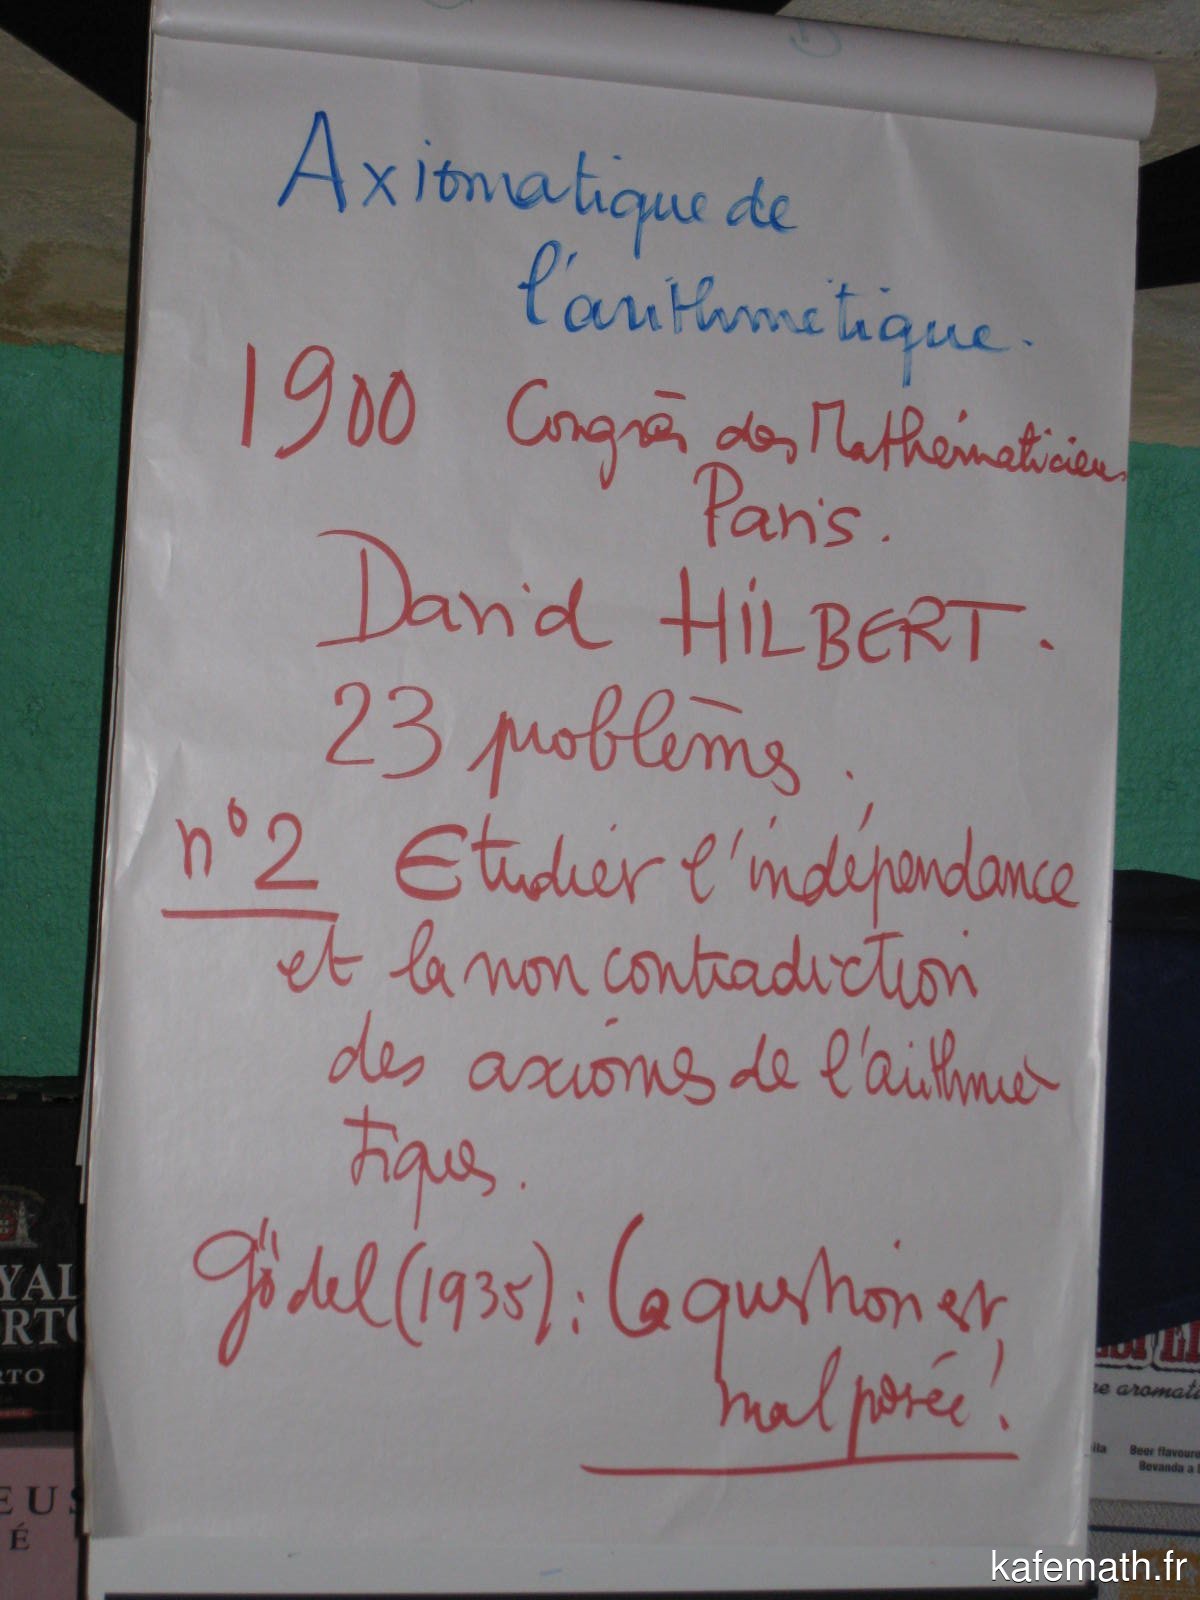 Axiomatique de
l'arithmétique.
1900 Congrès des Mathématiciens
Paris.
David HILBERT.
23 problèmes.
n° 2 Etudier l'indépendance
et la non contradiction
des axiomes de l'arithmé
tiques.
Gödel (1935): La question est
mal posée!
YAL
RTO
RTO
EUS
É
re aromati
ila
Beer flavoure
Bevanda a
kafemath.fr